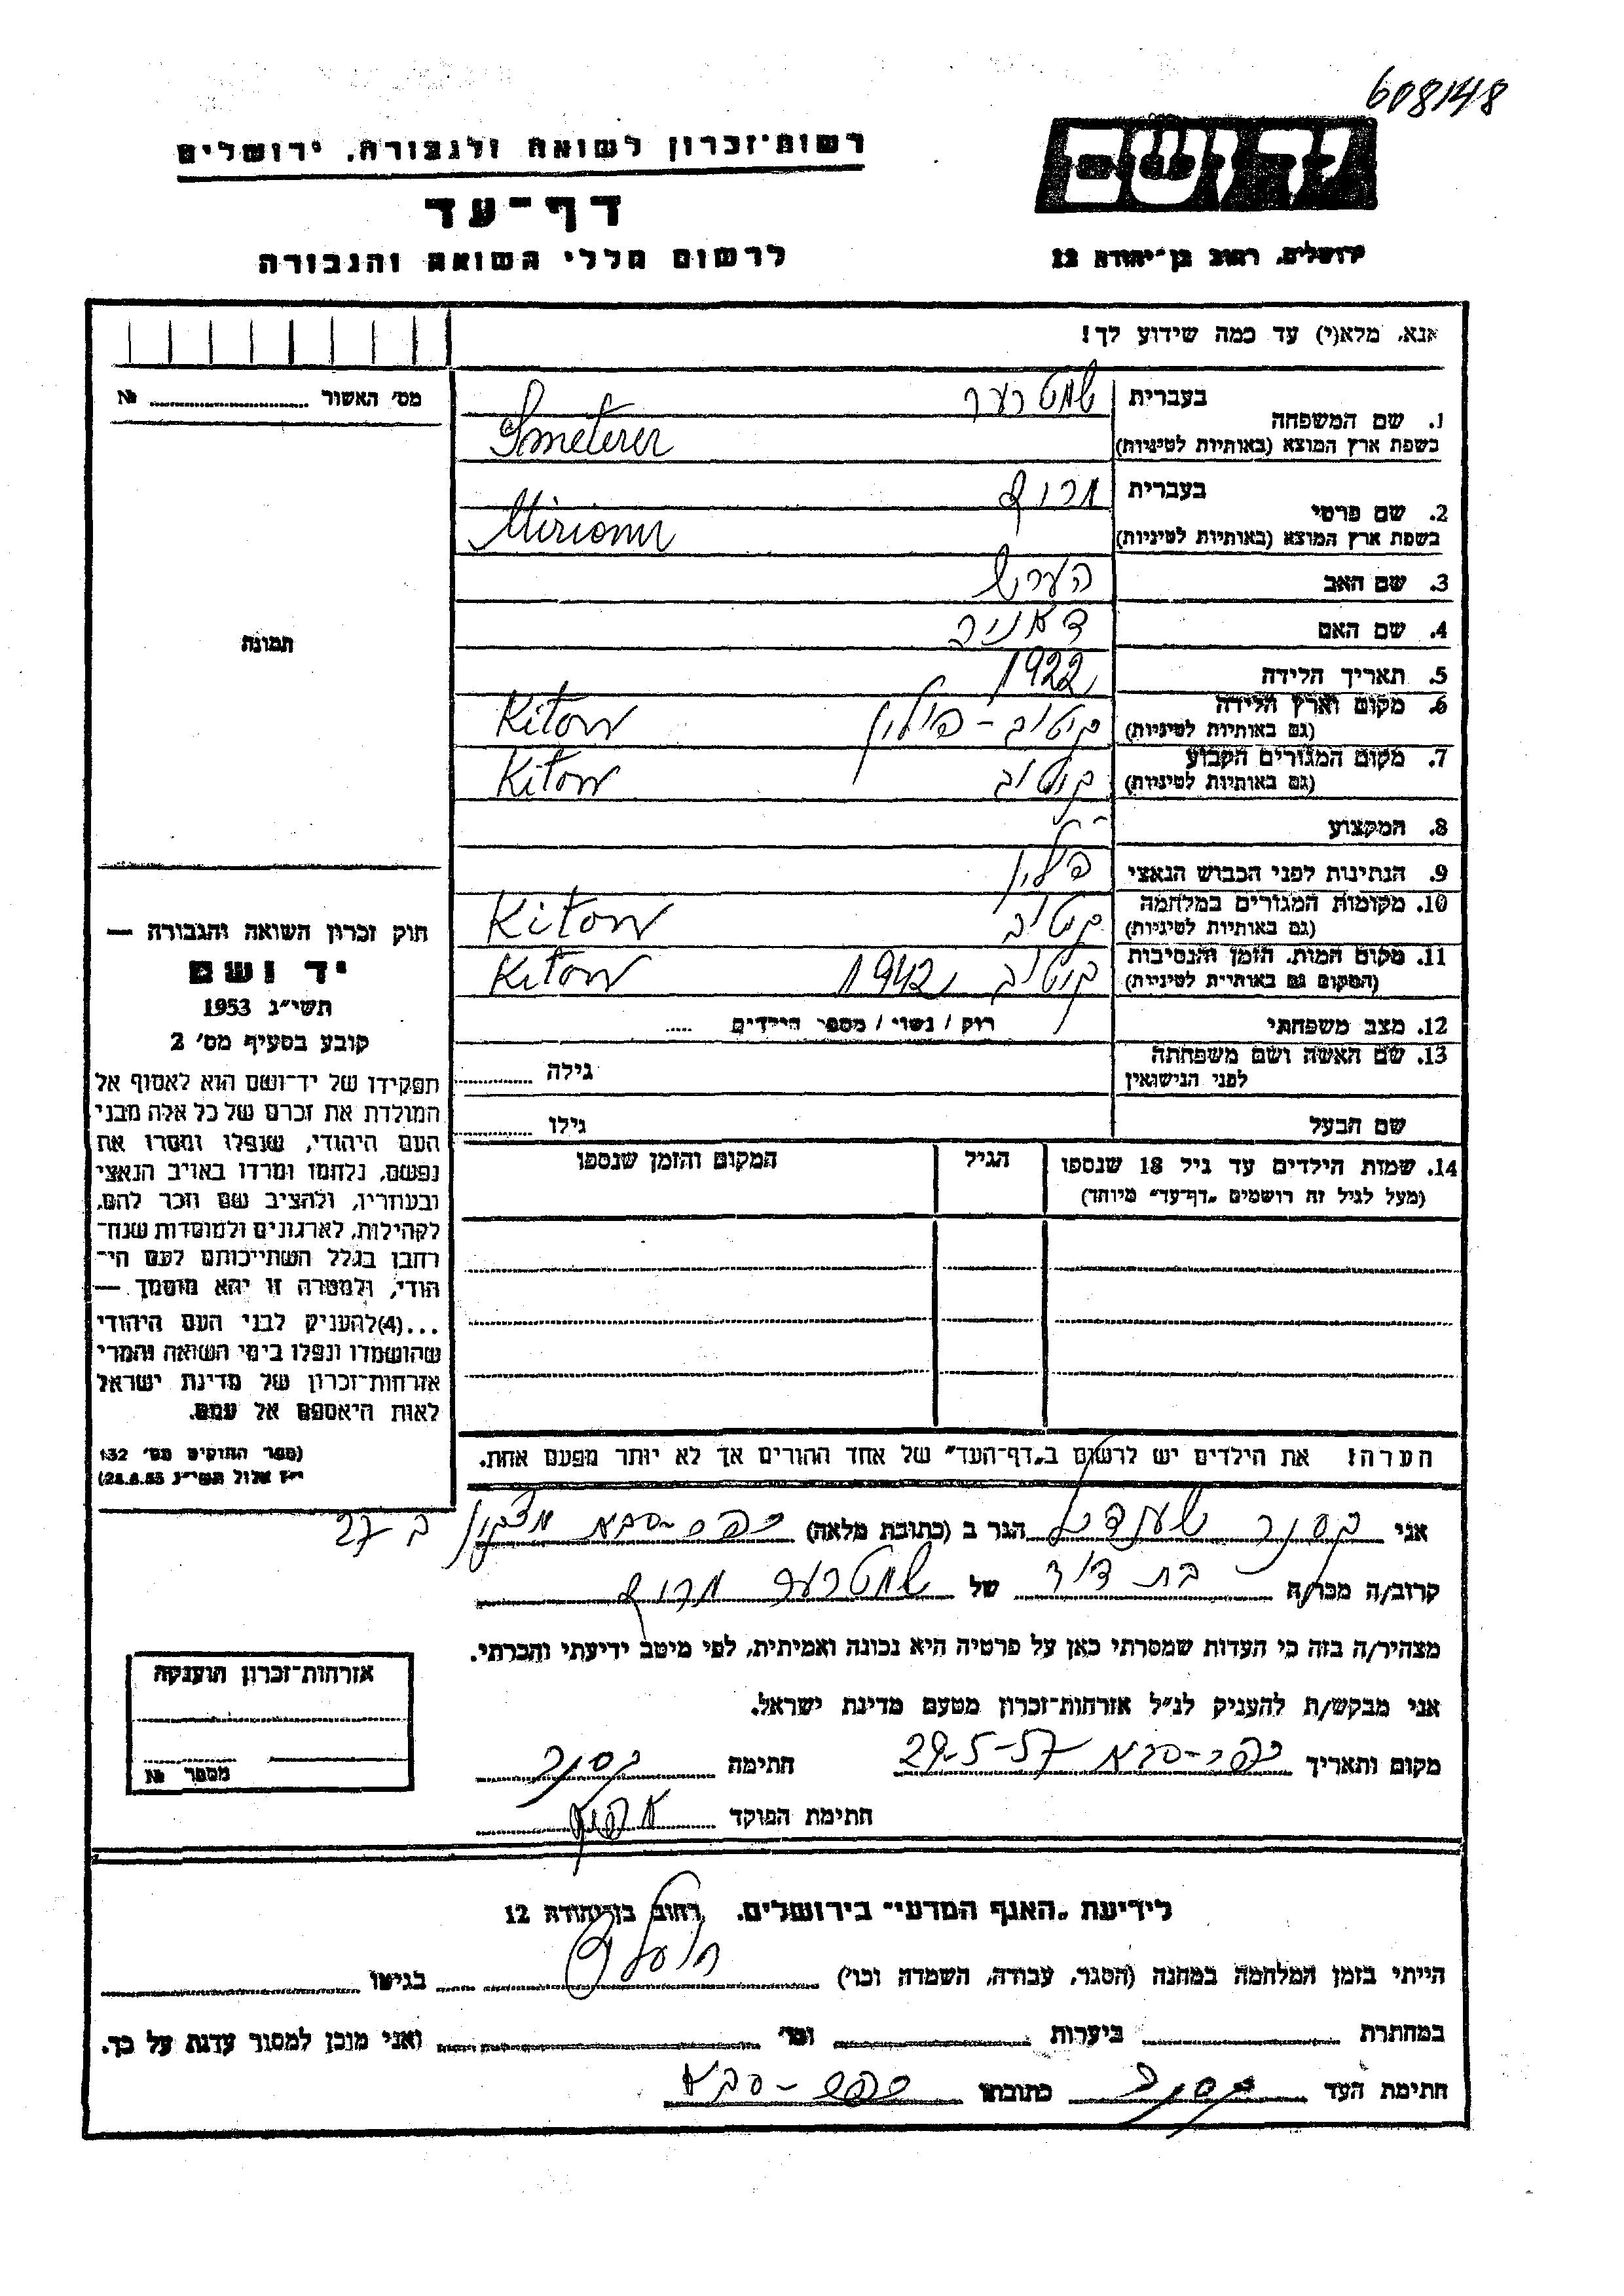 608148
יד ושם
רשות־זכרון לשואה ולגבורה, ירושלים
דף־עד
לרשום חללי השואה והגבורה
ירושלים, רחוב בן־יהודה 12
אנא, מלא(י) עד כמה שידוע לך!
מס׳ האשור № ..........
תמונה
1. שם המשפחה
בעברית שמטרער
בשפת ארץ המוצא (באותיות לטיניות) Smeterer
2. שם פרטי
בעברית מרים
בשפת ארץ המוצא (באותיות לטיניות) Miriam
3. שם האב הערש
4. שם האם
5. תאריך הלידה 1922
6. מקום וארץ הלידה קיטוב - פולין Kitow
(גם באותיות לטיניות)
7. מקום המגורים הקבוע קיטוב Kitow
(גם באותיות לטיניות)
8. המקצוע -
9. הנתינות לפני הכבוש הנאצי פולין
10. מקומות המגורים במלחמה קיטוב Kitow
(גם באותיות לטיניות)
11. מקום המות, הזמן והנסיבות קיטוב 1942 Kitow
(המקום גם באותיות לטיניות)
12. מצב משפחתי רוק / נשוי / מספר הילדים .....
13. שם האשה ושם משפחתה גילה ..........
לפני הנישואין
שם הבעל גילו ..........
14. שמות הילדים עד גיל 18 שנספו
(מעל לגיל זה רושמים „דף־עד״ מיוחד)
הגיל
המקום והזמן שנספו
הערה: את הילדים יש לרשום ב„דף־העד״ של אחד ההורים אך לא יותר מפעם אחת.
חוק זכרון השואה והגבורה —
יד ושם
תשי״ג 1953
קובע בסעיף מס׳ 2
תפקידו של יד־ושם הוא לאסוף אל
המולדת את זכרם של כל אלה מבני
העם היהודי, שנפלו ומסרו את
נפשם, נלחמו ומרדו באויב הנאצי
ובעוזריו, ולהציב שם וזכר להם,
לקהילות, לארגונים ולמוסדות שנח־
רחבו בגלל השתייכותם לעם הי־
הודי, ולמטרה זו יהא מוסמך —
...(4)להעניק לבני העם היהודי
שהושמדו ונפלו בימי השואה והמרי
אזרחות־זכרון של מדינת ישראל
לאות היאספם אל עמם.
(ספר החוקים מס׳ 132
י״ז אלול תשי״ג 28.8.53)
אני קסנר הגר ב (כתובת מלאה) כפר-סבא ב 27
קרוב/ה מכר/ה בת דוד של שמטרער מרים
מצהיר/ה בזה כי העדות שמסרתי כאן על פרטיה היא נכונה ואמיתית, לפי מיטב ידיעתי והכרתי.
אני מבקש/ת להעניק לנ״ל אזרחות־זכרון מטעם מדינת ישראל.
מקום ותאריך כפר-סבא 29-5-57 חתימה קסנר
חתימת הפוקד
אזרחות־זכרון הוענקה
מספר №
לידיעת „האגף המדעי״ בירושלים, רחוב בן־יהודה 12
הייתי בזמן המלחמה במחנה (הסגר, עבודה, השמדה וכו׳) בגיטו
במחתרת ביערות וכו׳ ואני מוכן למסור עדות על כך.
חתימת העד קסנר כתובתו כפר-סבא